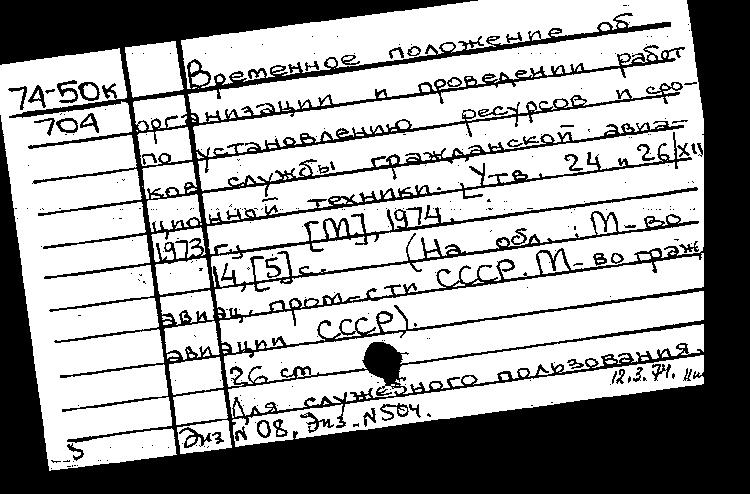 Временное положение об
74-50к
704 организации и проведении работ
по установлению ресурсов и сро-
ков службы гражданской авиа-
ционной техники. [Утв. 24 и 26/XII
1973 г. [М], 1974.
14, [5] с. (На обл.: М-во
авиац. пром-сти СССР. М-во граж.
авиации СССР).
26 cm
Для служебного пользования.
12.3.74.
Экз N 08, Экз. N 504.
5